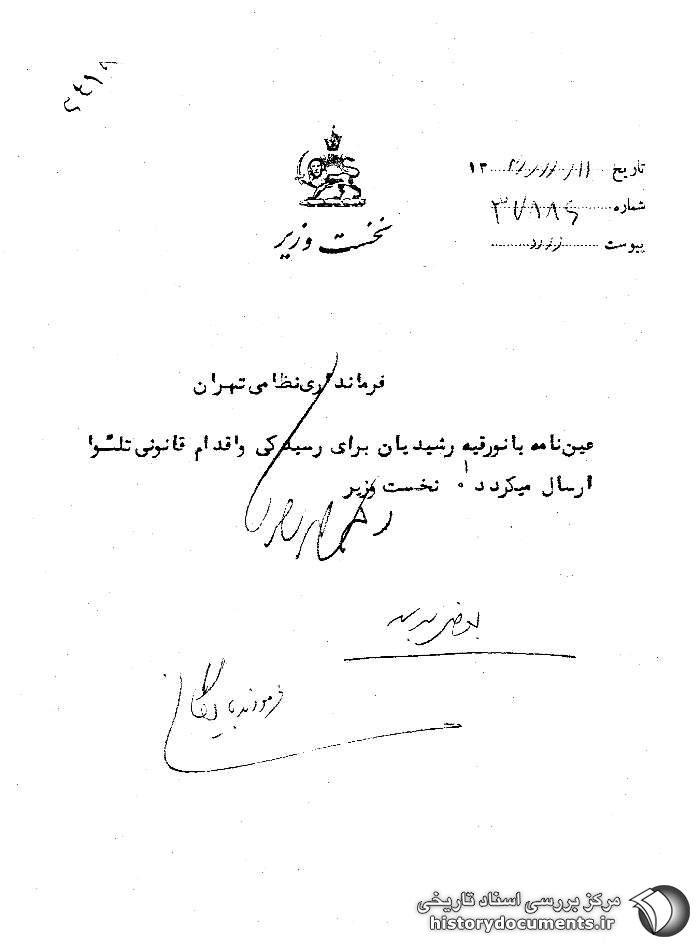 تاریخ ۱۳
شماره ۳۷۸۸۶
پیوست
نخست وزیر
فرمانداری نظامی تهران
عین نامه بانو رقیه رشیدیان برای رسیدگی و اقدام قانونی تلوا
ارسال میگردد نخست وزیر
بعرض برسد
فرمودند بایگانی
مرکز بررسی اسناد تاریخی
historydocuments.ir